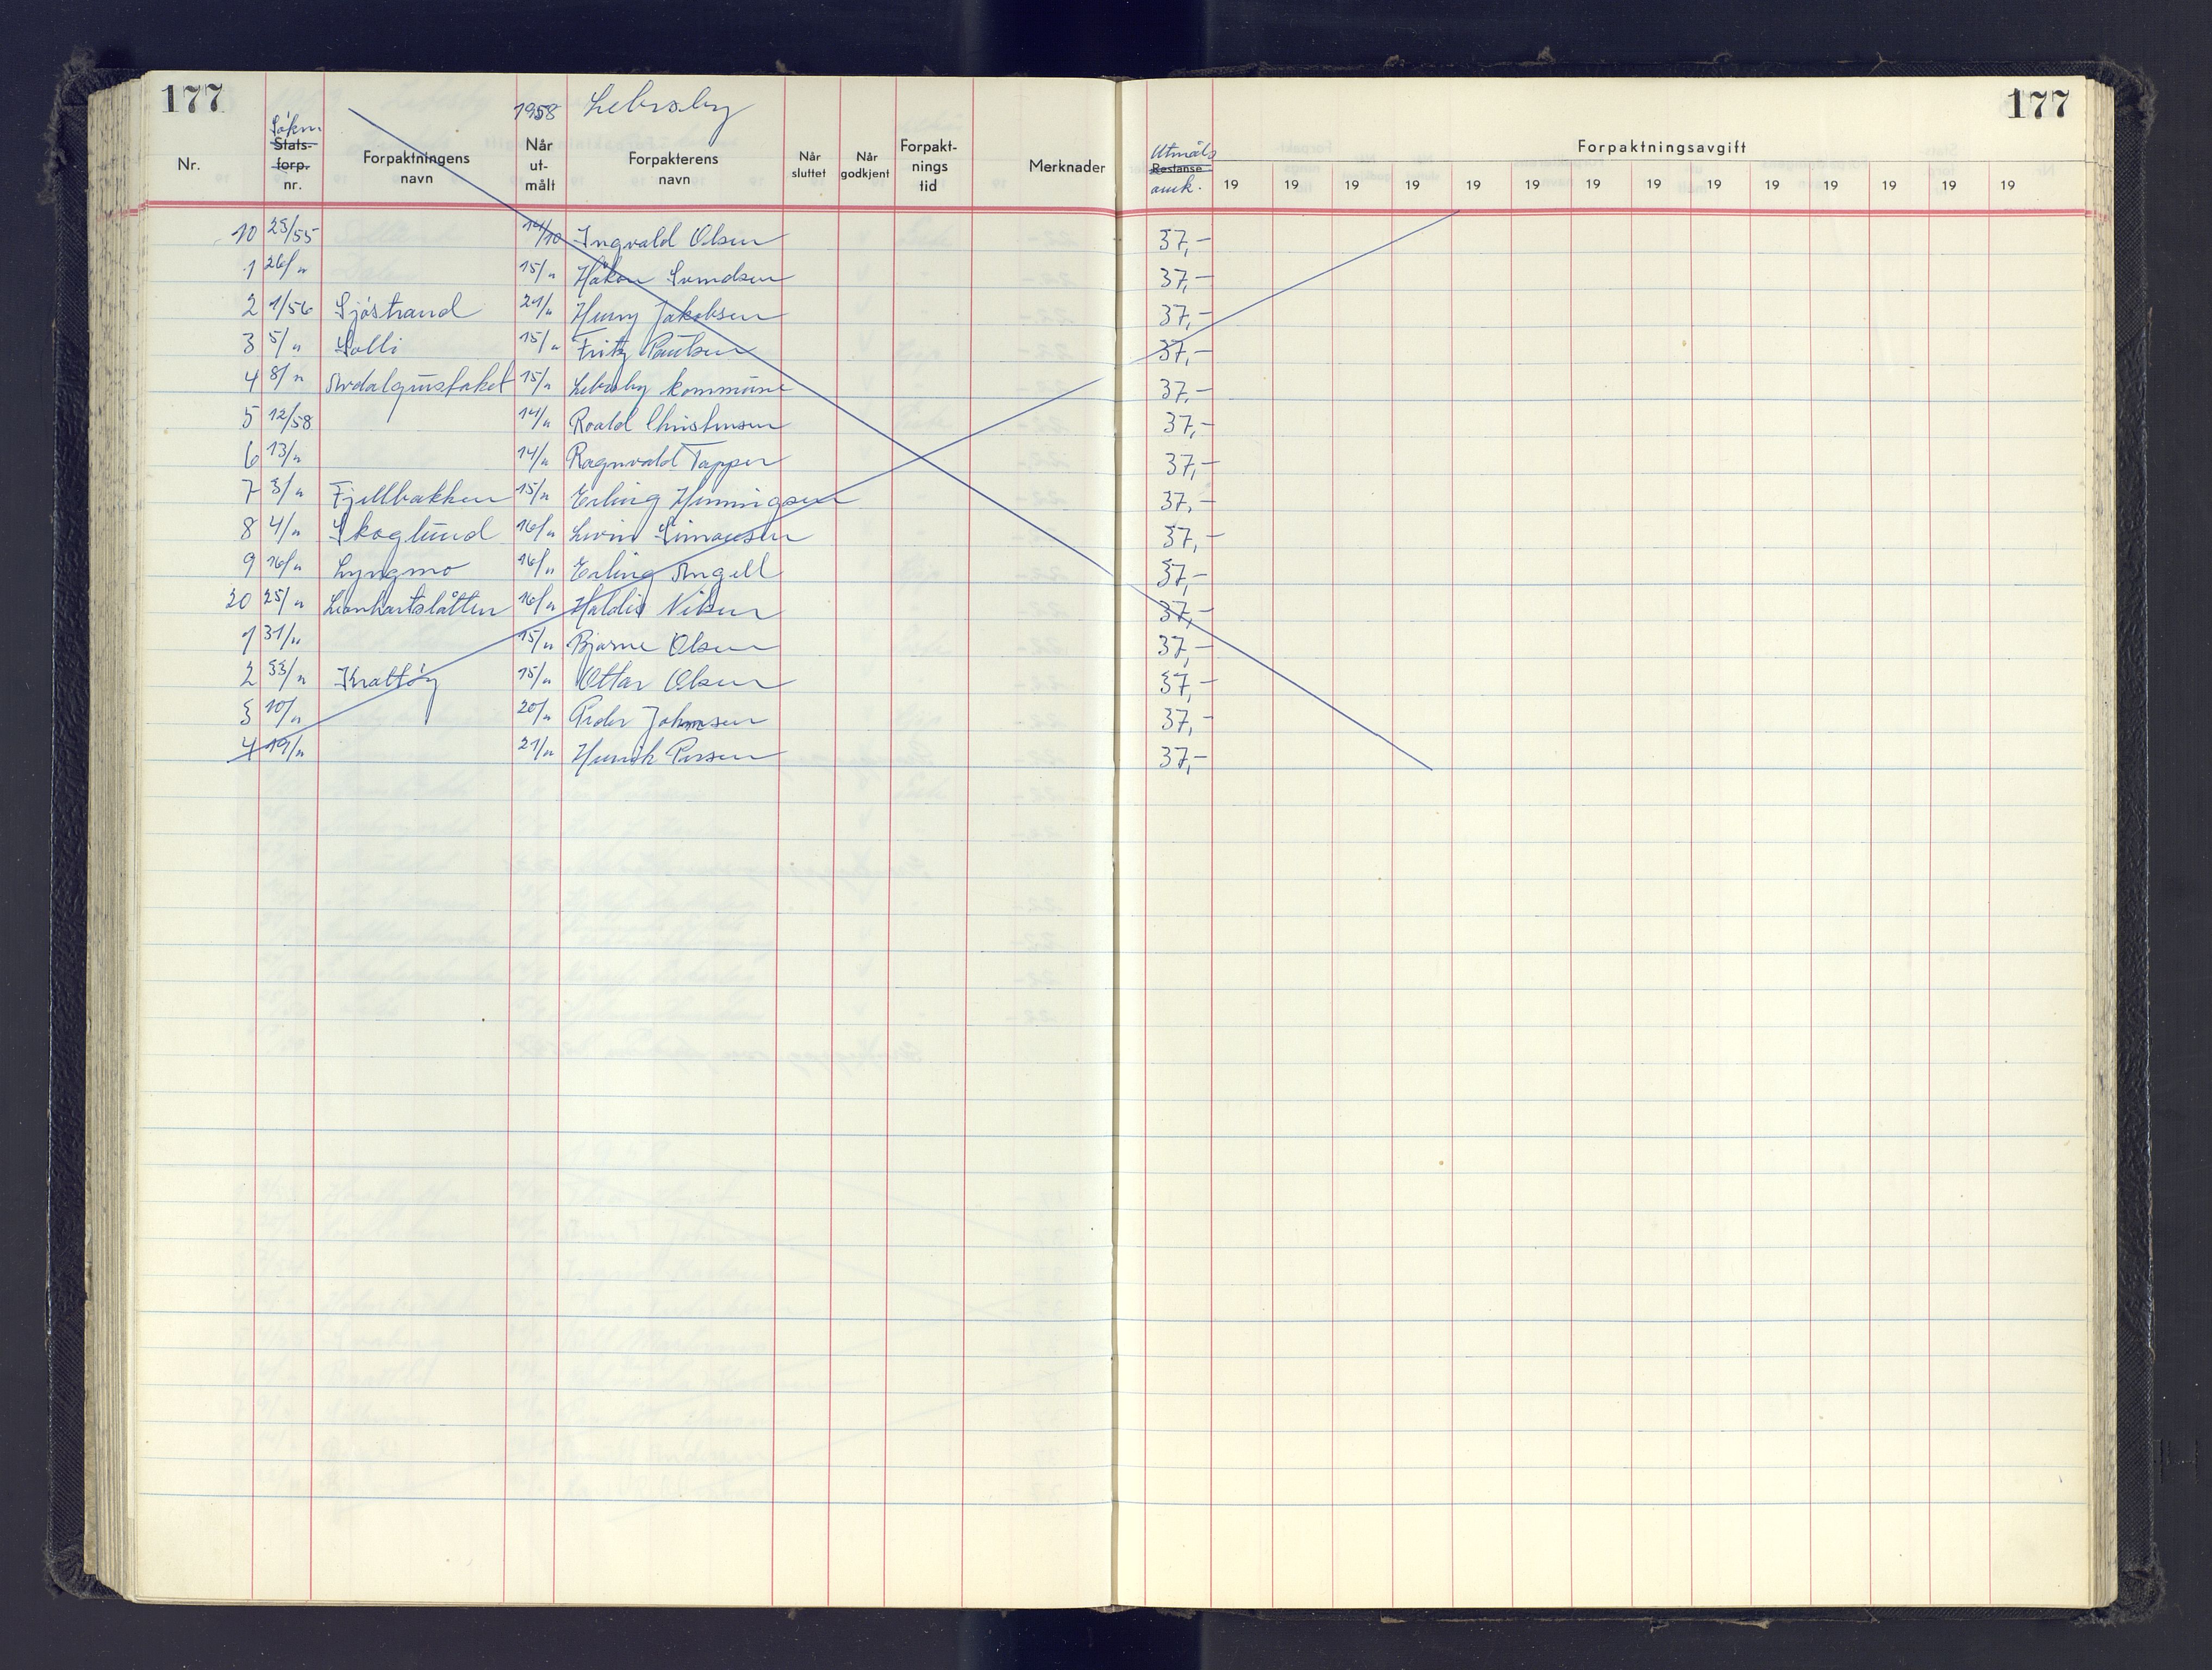 177
177
1958 Lebesby
Søkn.
Nr. Stats-forp. nr. Forpaktningens navn Når ut-målt Forpakterens navn Når sluttet Når godkjent Forpakt-nings tid Merknader Utmåls Restanse Forpaktningsavgift
19 19 19 19 19 19 19 19 19 19 19 19 19 19
10 23/55 14/10 Ingvald Olsen 37,-
1 26/" 15/" Håkon Svendsen 37,-
2 1/56 Sjøstrand 21/" Henry Jakobsen 37,-
3 5/" Solli 15/" Fritz Paulsen 37,-
4 8/" 15/" Lebesby kommune 37,-
5 12/58 14/" Roald Christensen 37,-
6 13/" 14/" Ragnvald Tapper 37,-
7 3/" Fjellbakken 15/" Erling Henningsen 37,-
8 4/" Skoglund 16/" Simonsen 37,-
9 16/" Lyngmo 16/" Erling Angell 37,-
20 25/" Leonhartslåtten 16/" Haldis Nilsen 37,-
1 31/" 15/" Bjarne Olsen 37,-
2 33/" Krattøy 15/" Ottar Olsen 37,-
3 10/" 20/" Peder Johnsen 37,-
4 19/" 21/" Henrik Persen 37,-